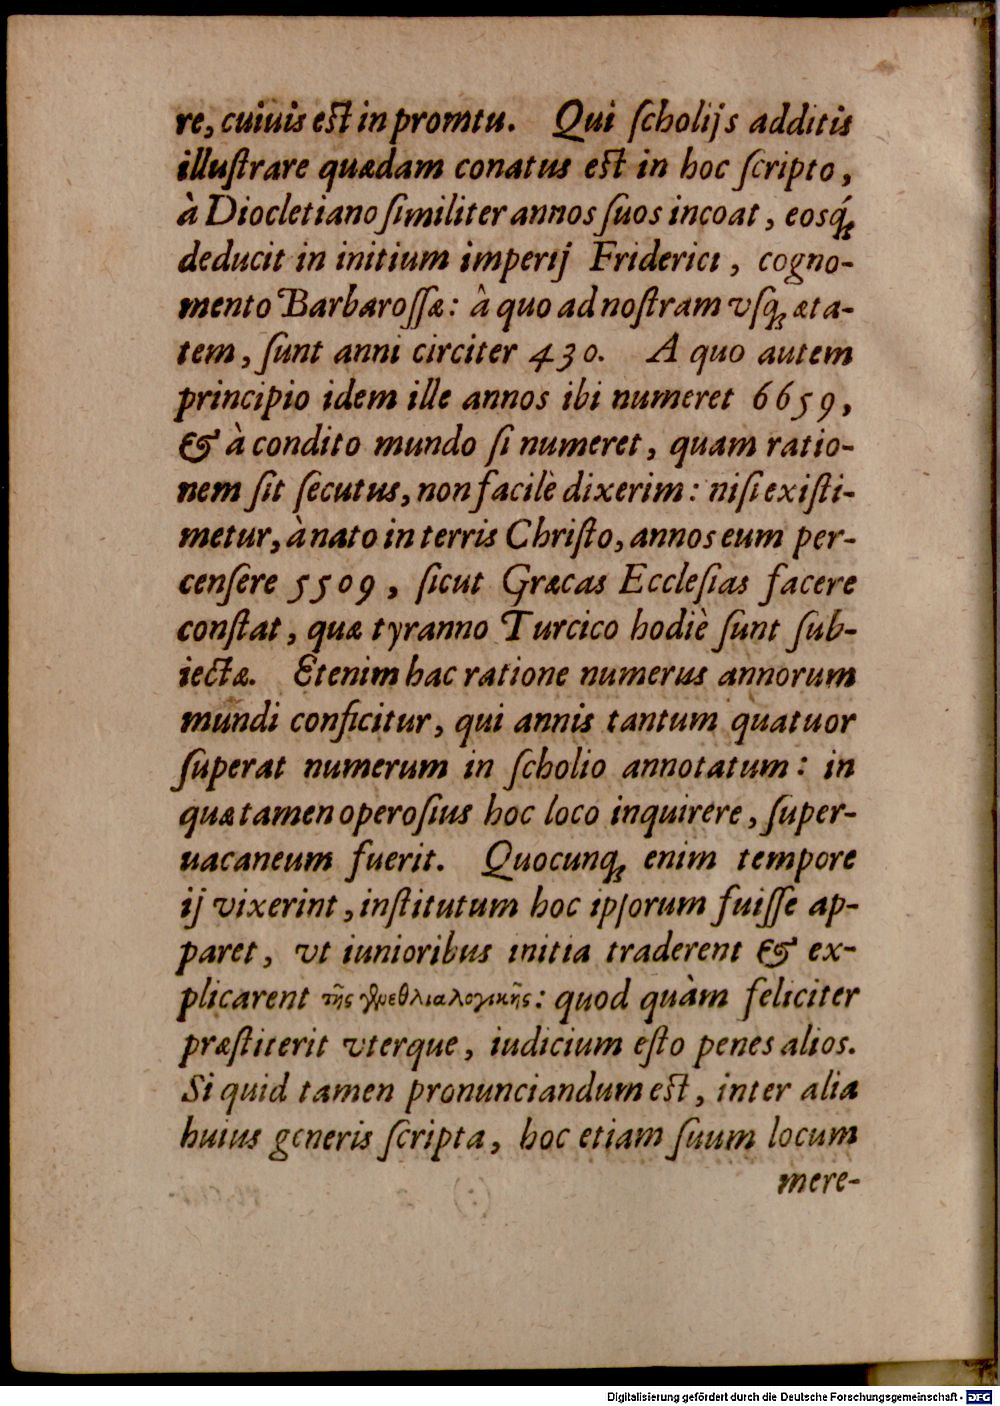 re, cuiuis est in promtu. Qui ſcholijs additis
illuſtrare quædam conatus est in hoc ſcripto,
à Diocletiano ſimiliter annos ſuos incoat, eosq́ꝫ
deducit in initium imperij Friderici, cogno-
mento Barbaroſſæ: à quo ad noſtram vſqꝫ æta-
tem, ſunt anni circiter 430. A quo autem
principio idem ille annos ibi numeret 6659,
& à condito mundo ſi numeret, quam ratio-
nem ſit ſecutus, non facilè dixerim: niſi exiſti-
metur, à nato in terris Chriſto, annos eum per-
cenſere 5509, ſicut Græcas Eccleſias facere
conſtat, quæ tyranno Turcico hodiè ſunt ſub-
iectæ. Etenim hac ratione numerus annorum
mundi conficitur, qui annis tantum quatuor
ſuperat numerum in ſcholio annotatum: in
quæ tamen operoſius hoc loco inquirere, ſuper-
uacaneum fuerit. Quocunqꝫ enim tempore
ij vixerint, inſtitutum hoc ipſorum fuiſſe ap-
paret, vt iunioribus initia traderent & ex-
plicarent τῆς γενεθλιαλογικῆς: quod quàm feliciter
præſtiterit vterque, iudicium eſto penes alios.
Si quid tamen pronunciandum est, inter alia
huius generis ſcripta, hoc etiam ſuum locum
mere-
Digitalisierung gefördert durch die Deutsche Forschungsgemeinschaft - DFG